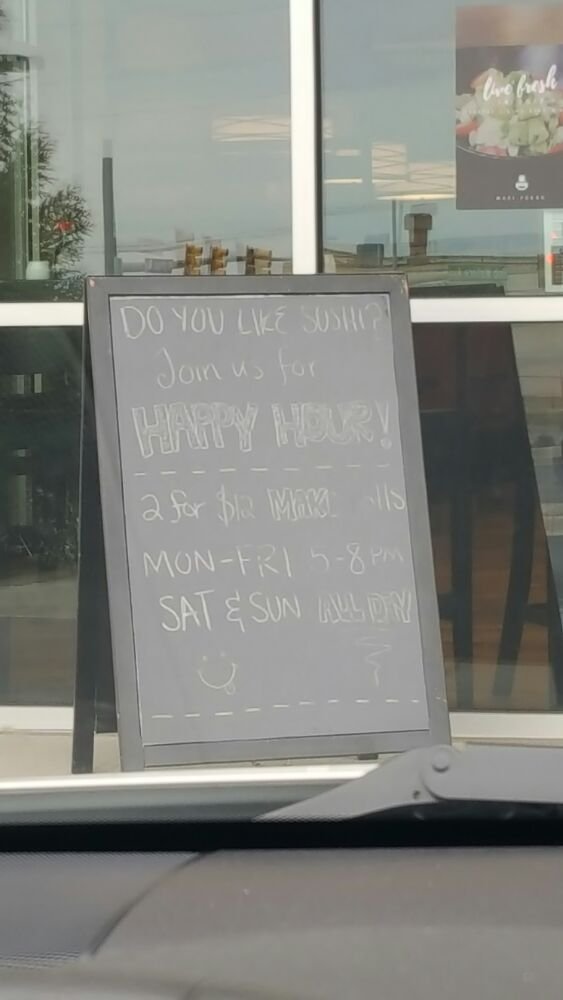 live fresh
MAKI POKAN
DO YOU LIKE SUSHI?
Join us for
HAPPY HOUR!
2 for $12 MAKI
MON-FRI 5-8PM
SAT & SUN ALL DAY